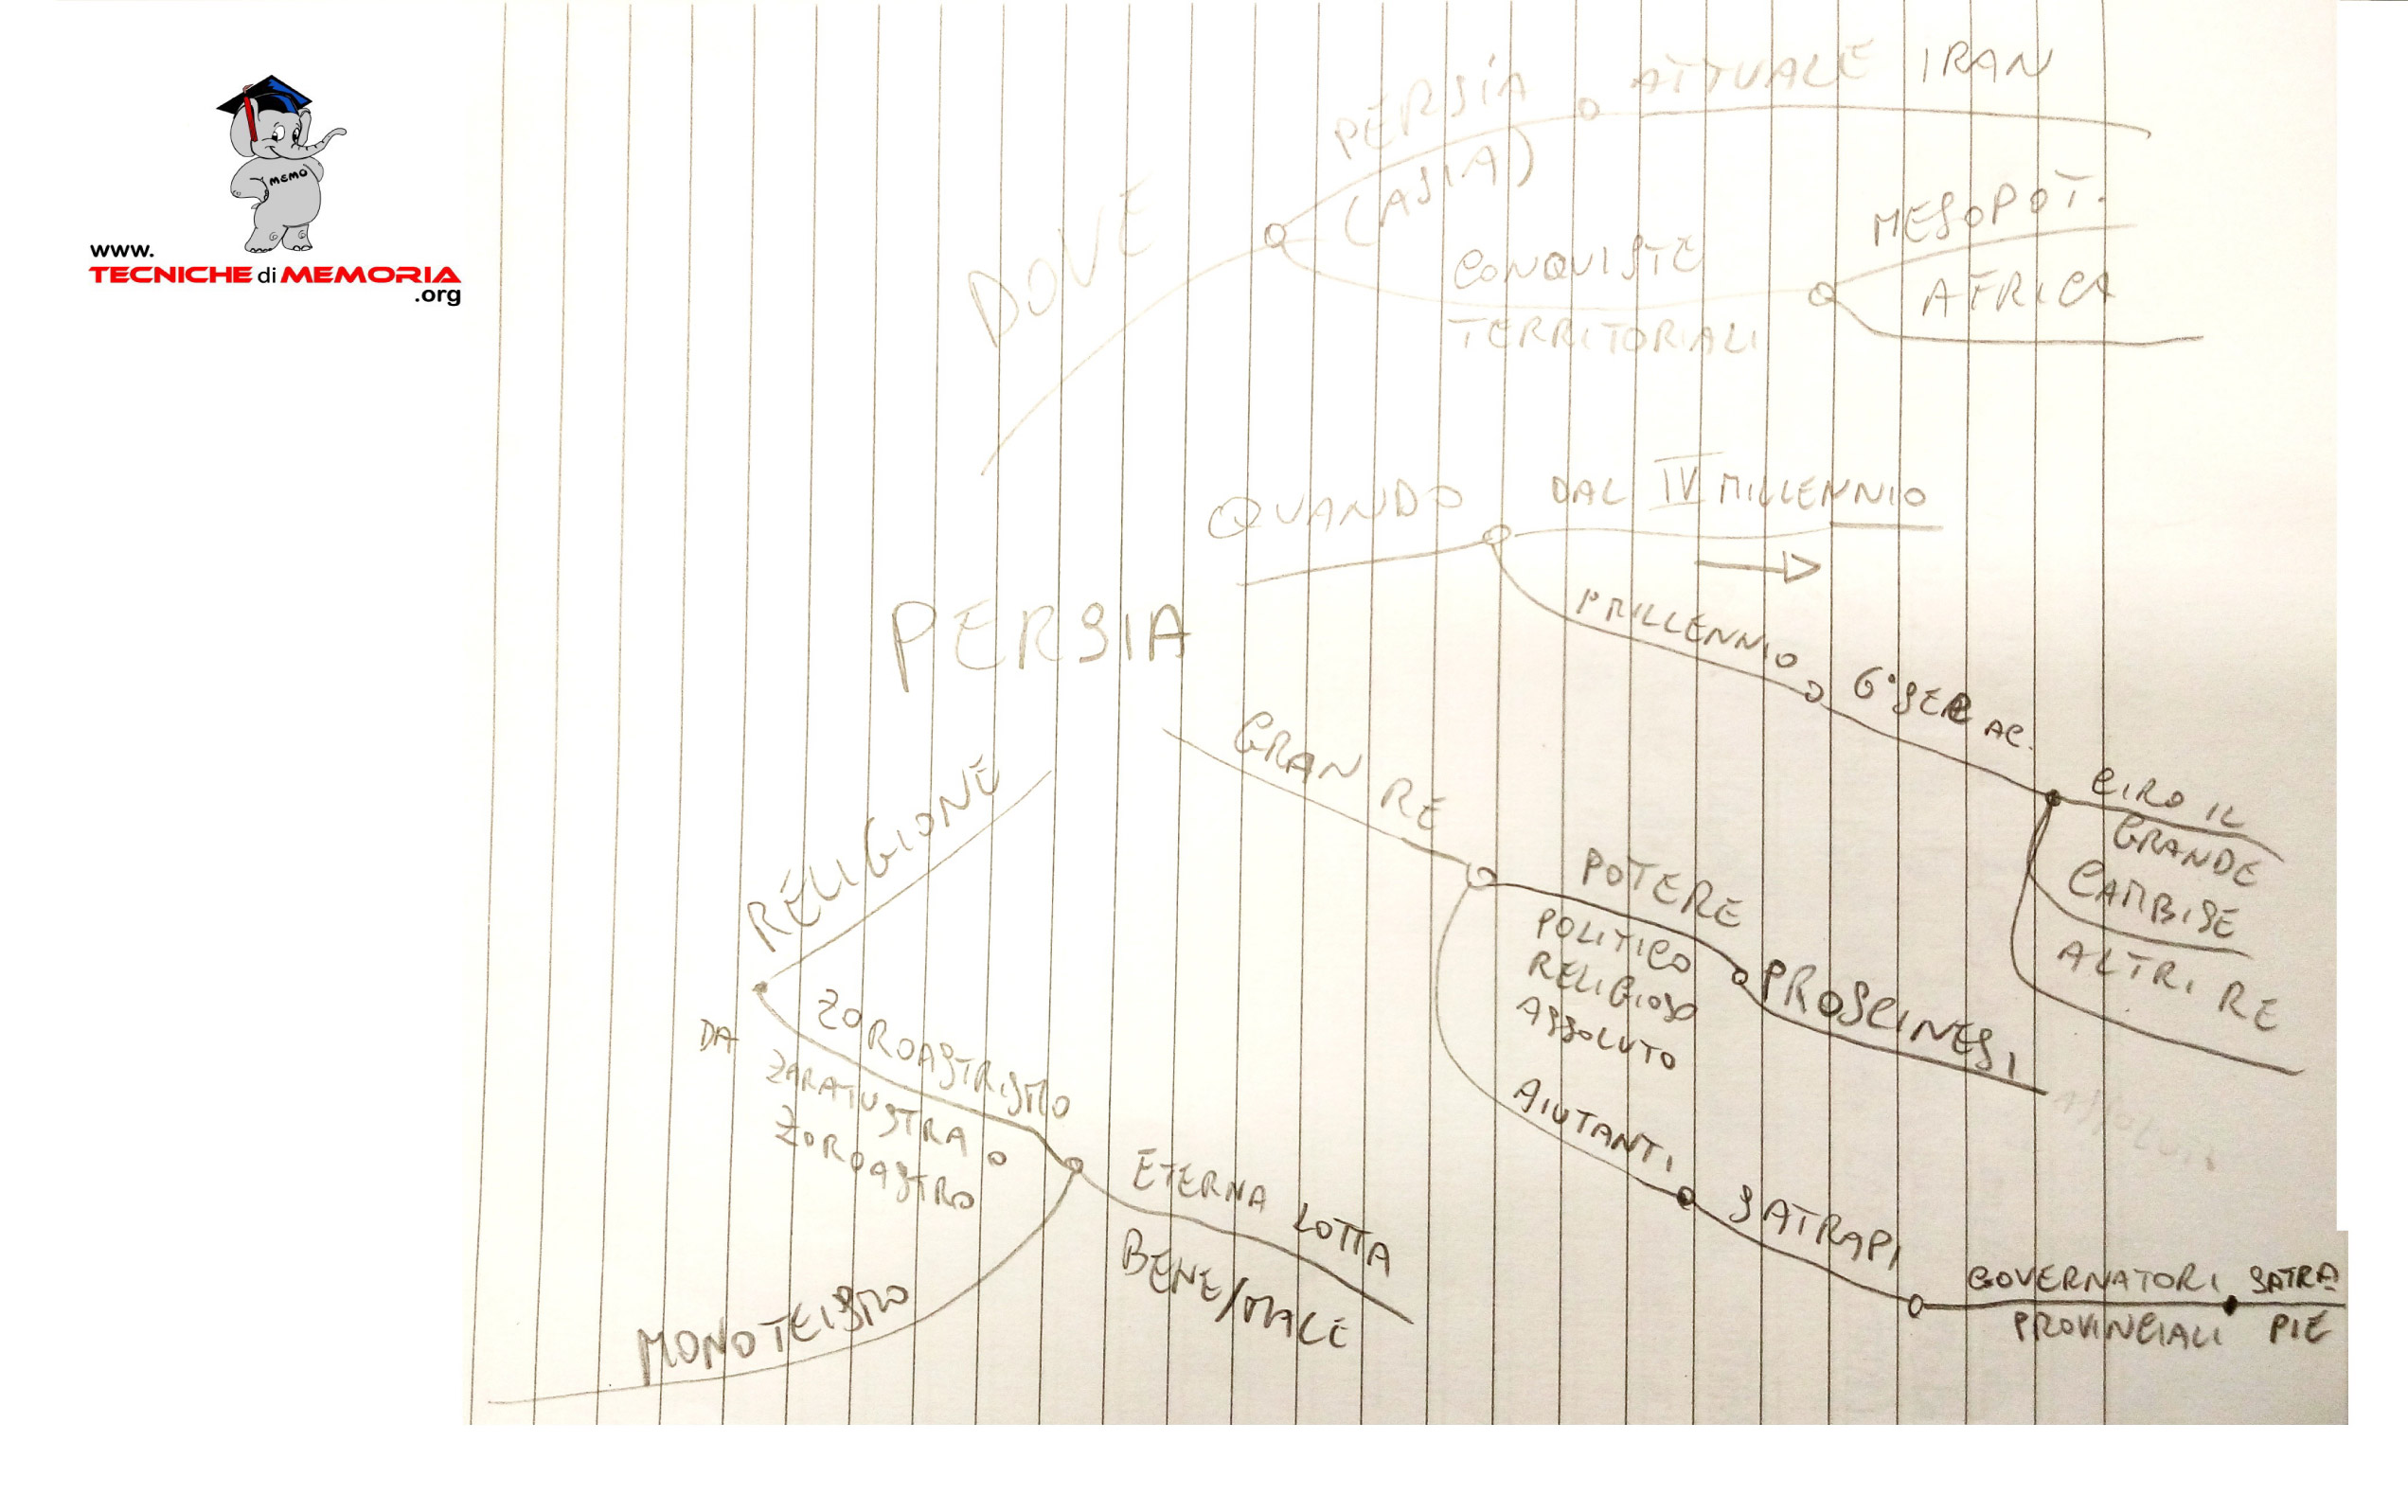 MEMO
www.
TECNICHE di MEMORIA
.org
DOVE
PERSIA
(ASIA)
ATTUALE IRAN
CONQUISTE
TERRITORIALI
MESOPOT.
AFRICA
QUANDO
DAL IV MILLENNIO
I MILLENNIO
6° SEC AC.
CIRO IL
GRANDE
CAMBISE
ALTRI RE
PERSIA
GRAN RE
POTERE
POLITICO
RELIGIOSO
ASSOLUTO
PROSCINESI
AIUTANTI
SATRAPI
GOVERNATORI
PROVINCIALI
SATRA-
PIE
RELIGIONE
ZOROASTRISMO
DA
ZARATUSTRA O
ZOROASTRO
ETERNA LOTTA
BENE/MALE
MONOTEISMO